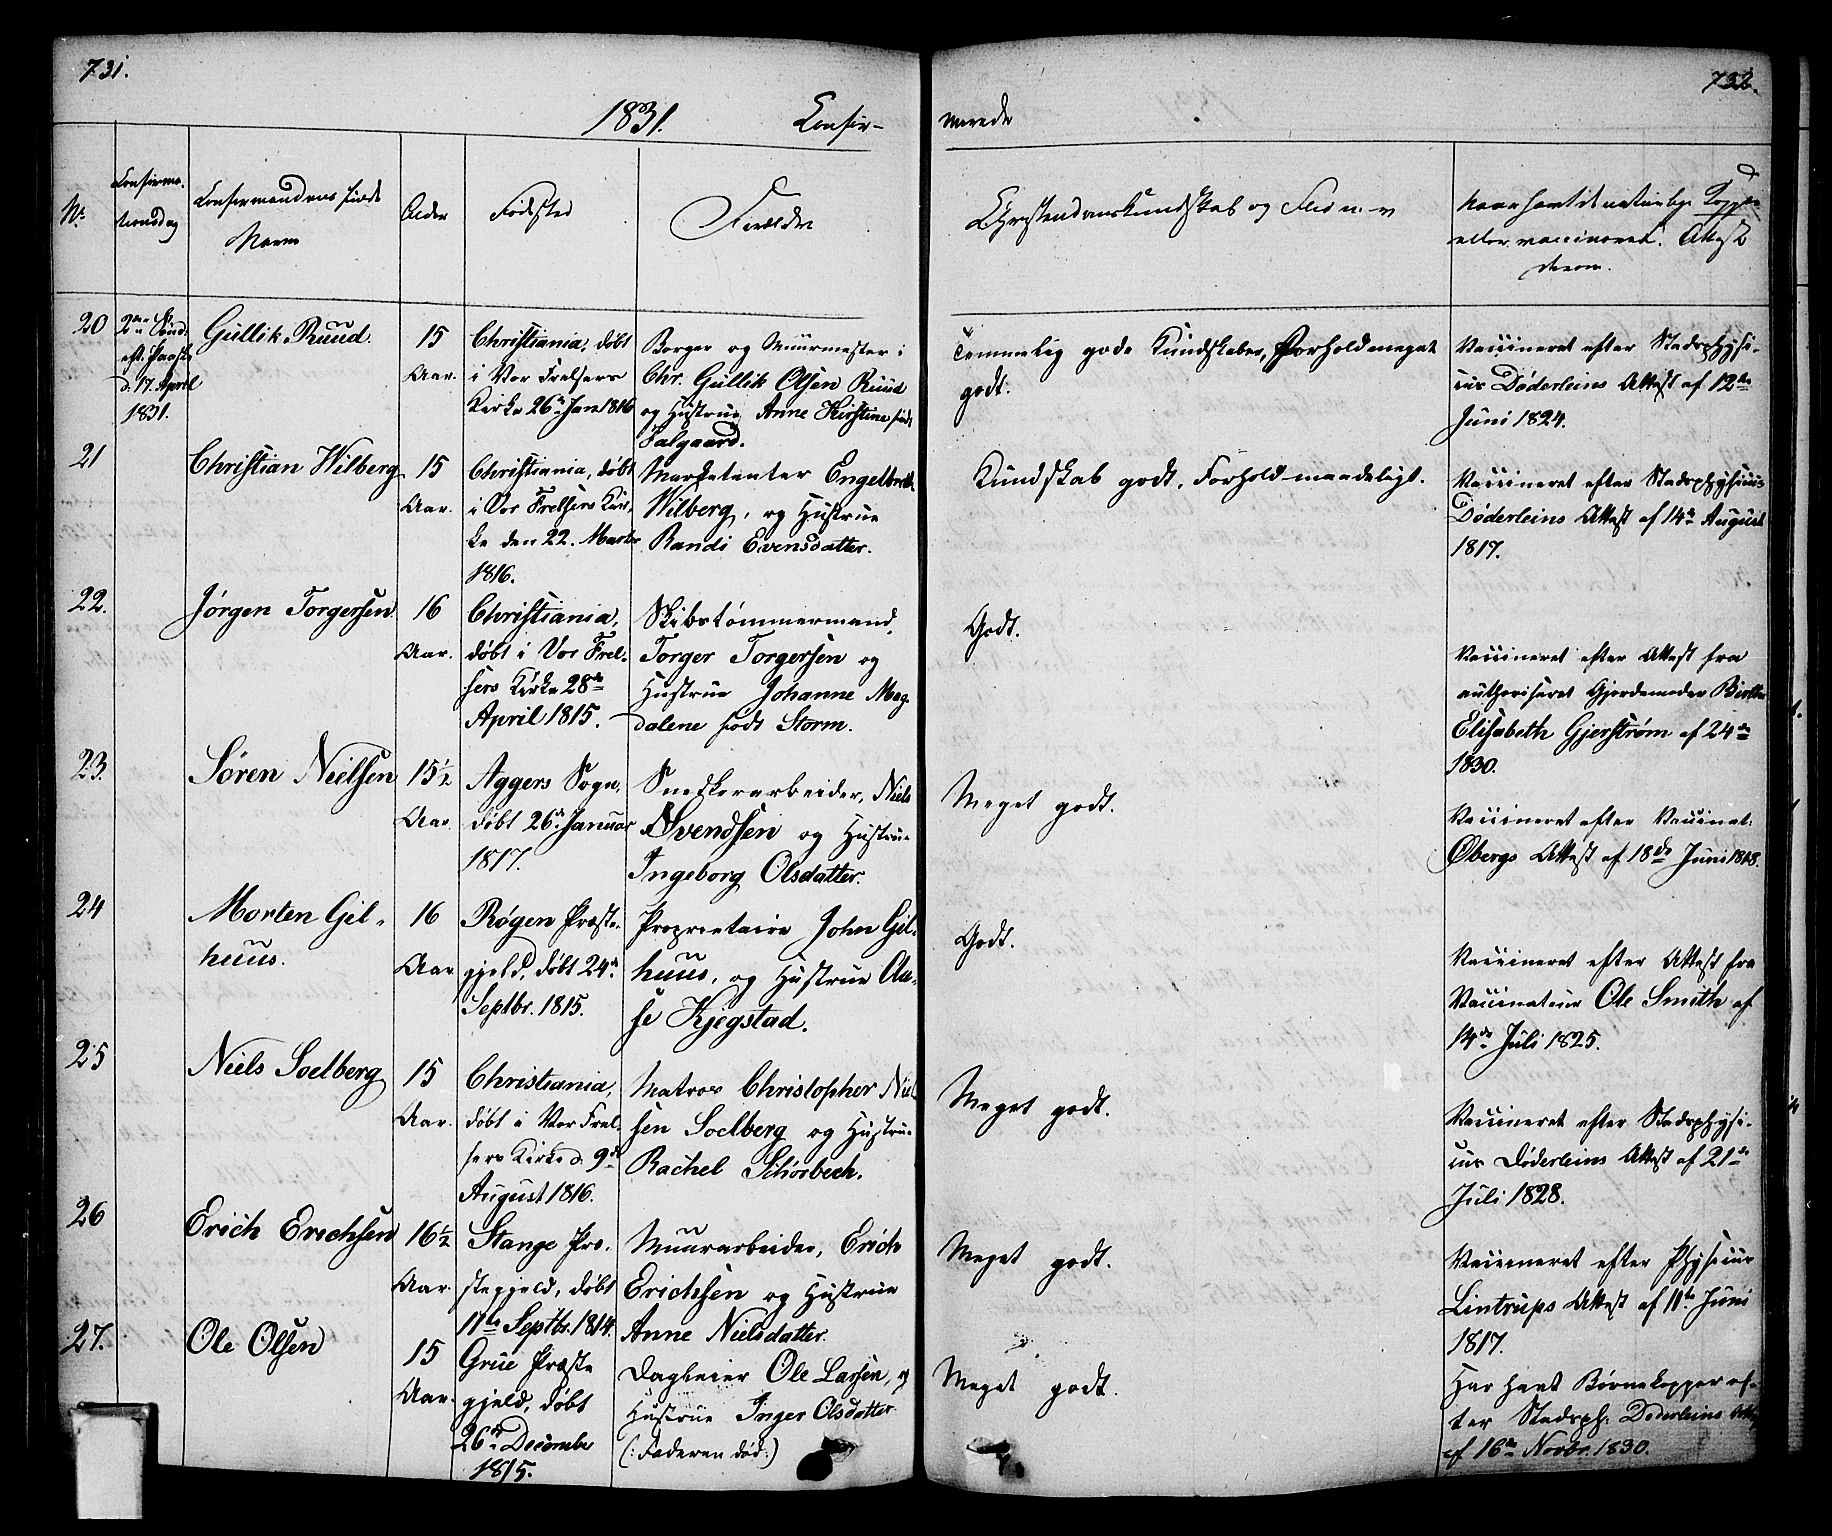 731.
732.
1831. Confir-
merede
No.
Confirma-
tionsdag
Confirmandens fulde
Navn
Alder
Fødested
Forældre
Christendomskundskab og Flid m. v
Naar havt de naturlige Kopper
eller vaccineret. Attest
derom.
20
2den Sønd.
eft. Paaske
d. 17. April
1831.
Gullik Ruud.
15
Aar.
Christiania, døbt
i Vor Frelsers
Kirke 26de Jan 1816
Borger og Muurmester i
Chr. Gullik Olsen Ruud
og Hustrue Anne Kirstine, født
Falgaard.
Temmelig gode Kundskaber, Forhold meget
godt.
Vaccineret efter Stadsphysi-
cus Døderleins Attest af 12te
Juni 1824.
21
Christian Wilberg
15
Aar.
Christiania, døbt
i Vor Frelsers Kir-
ke den 22. Marts
1816.
Marketenter Engelbreth
Wilberg, og Hustrue
Randi Evensdatter.
Kundskab godt, Forhold maadeligt.
Vaccineret efter Stadsphysicus
Døderleins Attest af 14de August
1817.
22.
Jörgen Torgersen
16
Aar.
Christiania,
døbt i Vor Frel-
sers Kirke 28de
April 1815.
Skibstømmermand,
Torger Torgersen og
Hustrue Johanne Mag
dalene født Storm.
Godt.
Vaccineret efter Attest fra
authoriseret Gjordemoder Birthe
Elisabeth Gjerstrøm af 24de
1830.
23.
Søren Nielsen
15½
Aar.
Aggers Sogn,
døbt 26de Januar
1817.
Snedkerarbeider, Niels
Svendsen og Hustrue
Ingeborg Olsdatter.
Meget godt.
Vaccineret efter Vaccinat:
Øbergs Attest af 18de Juni 1818.
24
Morten Gil-
huus.
16
Aar
Røgen Præste-
gjeld, døbt 24de
Septbr. 1815.
Proprietaire John Gil-
huus, og Hustrue Aa-
se Kjegstad.
Godt.
Vaccineret efter Attest fra
Vaccinateur Ole Smith af
14de Juli 1825.
25
Niels Soelberg
15
Aar.
Christiania,
døbt i Vor Frel-
sers Kirke d. 9de
August 1816.
Matros Christopher Niel
sen Soelberg og Hustrue
Rachel Schørbech.
Meget godt.
Vaccineret efter Stadsphysi-
cus Døderleins Attest af 21de
Juli 1828.
26
Erich Erichsen
16½
Aar.
Stange Præ-
stegjeld, døbt
11te Septbr. 1814.
Muurarbeider, Erich
Erichsen og Hustrue
Anne Nielsdatter.
Meget godt.
Vaccineret efter Physicus
Lintrups Attest af 11te Juni
1817.
27.
Ole Olsen
15
Aar.
Grue Præste
gjeld, døbt
26de December
1815.
Dagleier Ole Larsen, og
Hustrue Inger Olsdatter
(: Faderen død:)
Meget godt.
Har havt Børnekopper ef-
ter Stadsph: Døderleins Attest
af 16de Novbr. 1830.